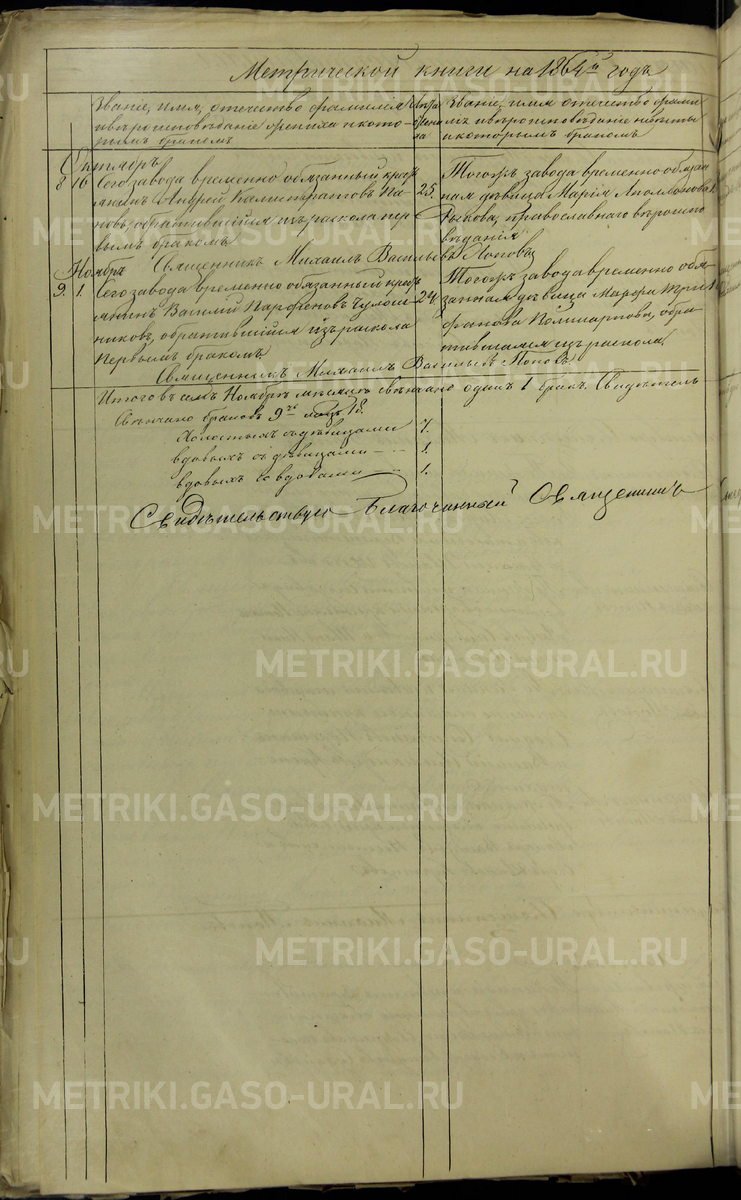 Метрической книги на 1864й годъ
Званіе, имя, отечество фамилія
и вѣроисповѣданіе жениха и кото-
рымъ бракомъ
Званіе, имя отечество фами
лія и вѣроисповѣданіе невѣсты
и которымъ бракомъ
Октябрь
8 16 Сего завода временно обязанный крестья
нинъ Андрей Калистратовъ Па
новъ, обратившійся изъ раскола пер
вымъ бракомъ
25.
Тогожъ завода временно обязан
ная дѣвица Марія Аполлонова
Рыкова, православнаго вѣроиспо
вѣданія
Священникъ Михаилъ Васильевъ Поповъ
Ноябрь
9. 1. Сего завода временно обязанный кресть
янинъ Василій Парфеновъ
никовъ, обратившійся изъ раскола
первымъ бракомъ
24.
Тогожъ завода временно обя-
занная дѣвица Марфа Три
фонова Поликарпова, обра
тившаяся изъ раскола
Священникъ Михаилъ Васильевъ Поповъ
Итого въ семъ Ноябрѣ мѣсяцѣ вѣнчано одинъ 1 бракъ. Свидѣтель
Вѣнчано браковъ 9
Холостыхъ съ дѣвицами 7.
вдовыхъ съ дѣвицами 1.
вдовыхъ со вдовами 1.
Свидѣтельствую Благочинный Священникъ
METRIKI.GASO-URAL.RU